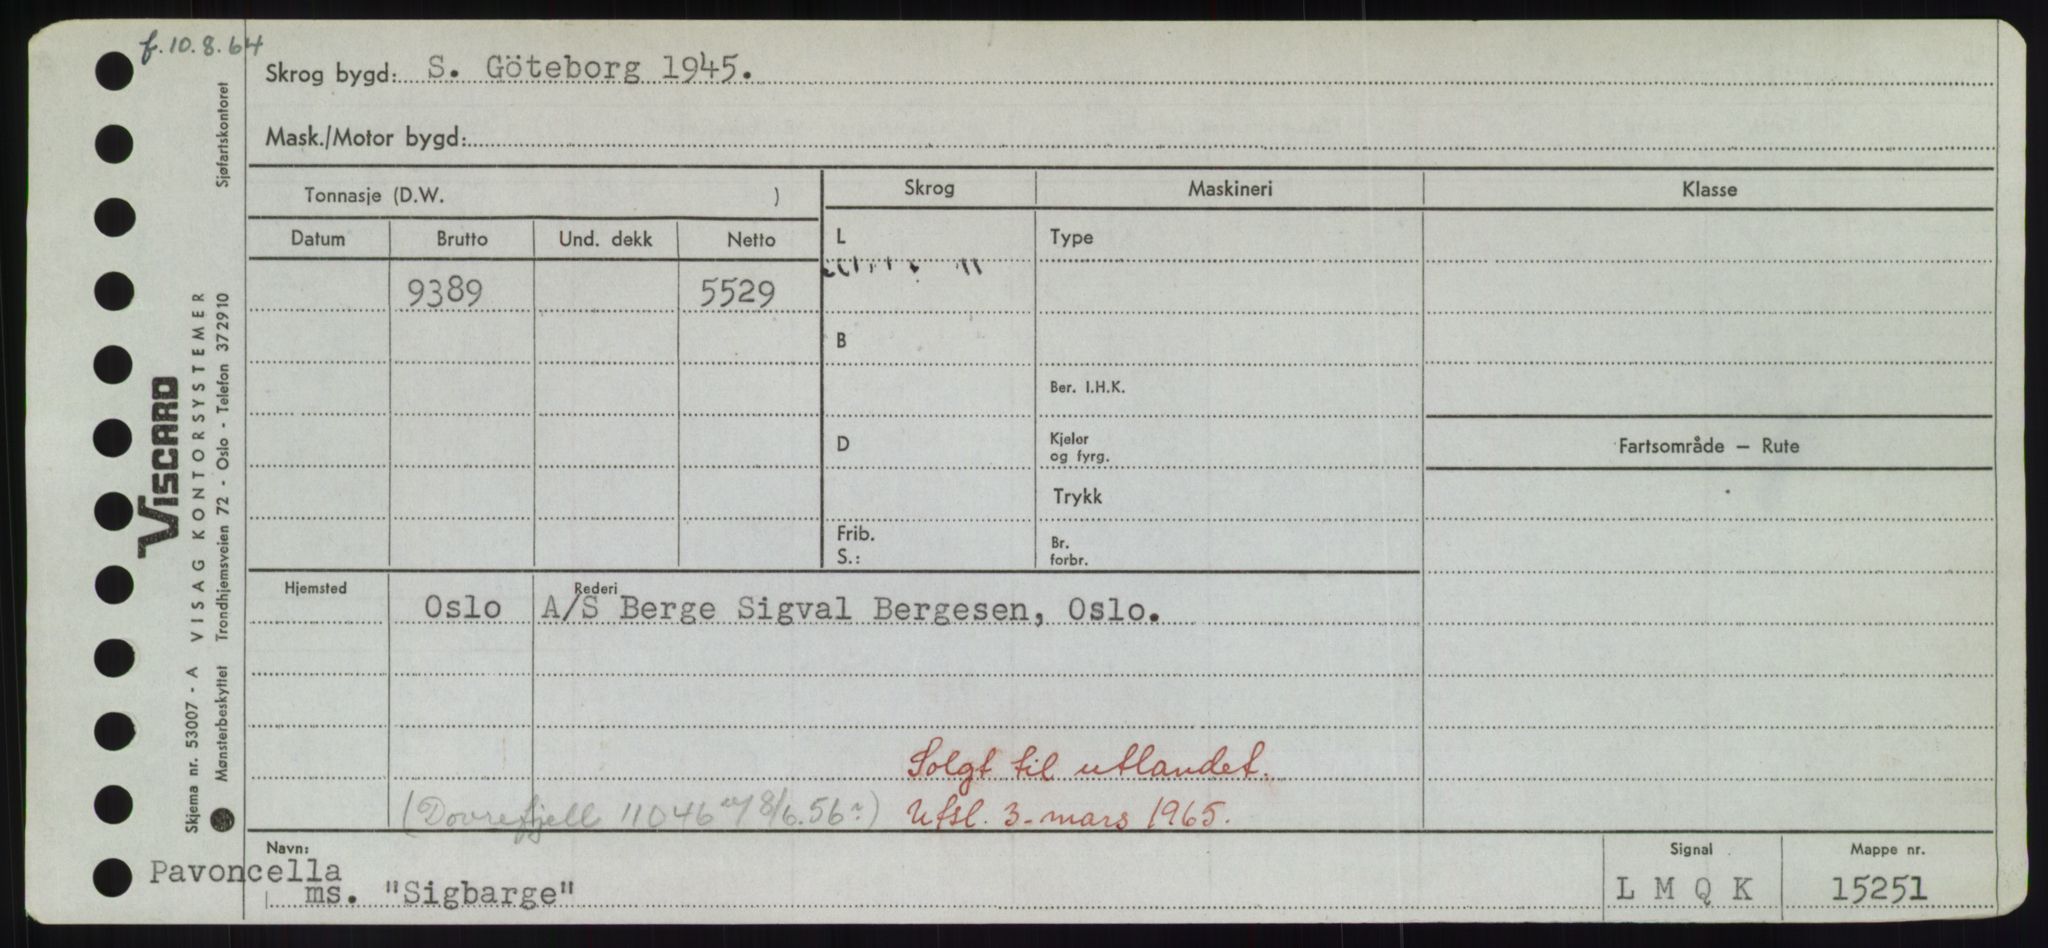 f.10.8.64
Skrog bygd: S. Göteborg 1945.
Mask./Motor bygd:
Tonnasje (D.W. )
Skrog
Maskineri
Klasse
Datum
Brutto
Und. dekk
Netto
L
Type
9389
5529
B
Ber. I.H.K.
D
Kjeler
og fyrg.
Fartsområde — Rute
Trykk
Frib.
S.:
Br.
forbr.
Hjemsted
Rederi
Oslo
A/S Berge Sigval Bergesen, Oslo.
Solgt til utlandet.
(Dovrefjell 11046 8/6.56)
Utsl. 3-mars 1965.
Navn:
Pavoncella
ms. "Sigbarge"
Signal
L M Q K
Mappe nr.
15251
VISCARD
Skjema nr. 53007 - A VISAG KONTORSYSTEMER
Mønsterbeskyttet Trondhjemsveien 72 - Oslo - Telefon 372910 Sjøfartskontoret